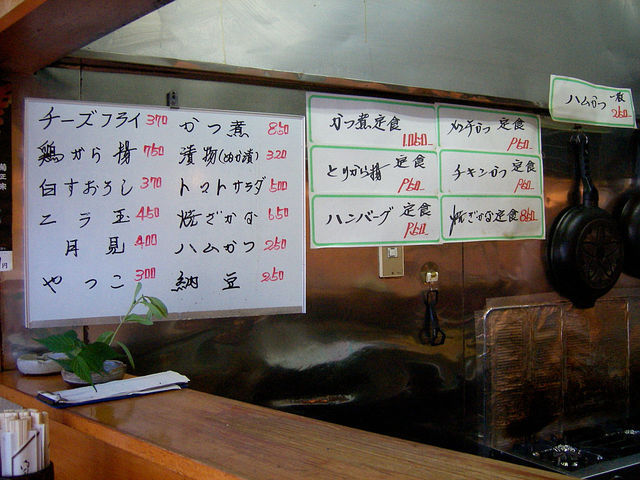 チーズフライ 370
鶏から揚 750
白すおろし 370
ニラ玉 450
月見 400
やっこ 300
かつ煮 850
漬物(ぬか漬) 320
トマトサラダ 500
焼ざかな 650
ハムかつ 260
納豆 250
かつ煮定食 1,050
とりから揚定食 950
ハンバーグ定食 950
定食 950
チキンかつ定食 950
焼ざかな定食 850
ハムかつ一枚 260